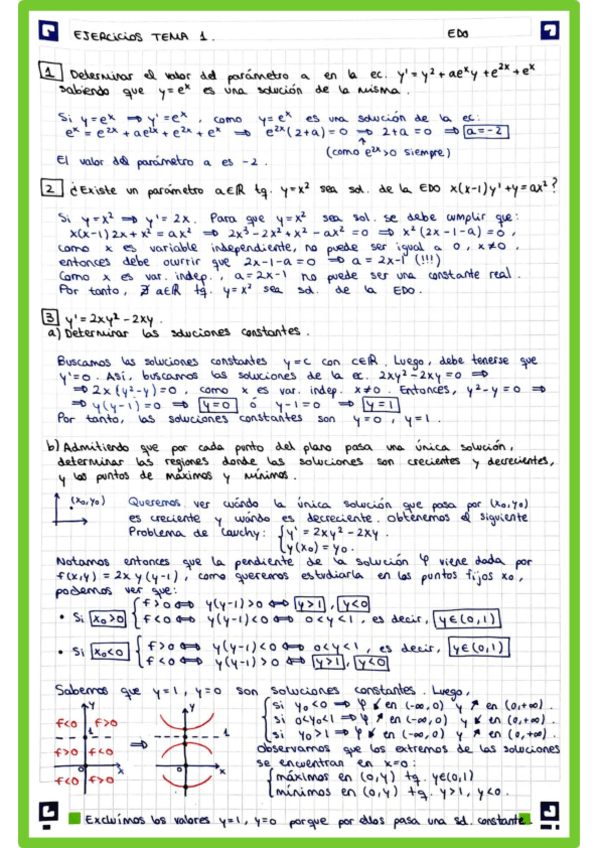 EJERCICIOS TEMA 1. EDO
1 Determinar el valor del parámetro a en la ec. y' = y² + ae^x y + e^2x + e^x
sabiendo que y = e^x es una solución de la misma.
Si y = e^x ⇒ y' = e^x, como y = e^x es una solución de la ec:
e^x = e^2x + ae^2x + e^2x + e^x ⇒ e^2x(2+a) = 0 ⇒ 2+a = 0 ⇒ a = -2
(como e^2x > 0 siempre)
El valor del parámetro a es -2.
2 ¿Existe un parámetro a∈ℝ tq. y = x² sea sol. de la EDO x(x-1)y' + y = ax²?
Si y = x² ⇒ y' = 2x. Para que y = x² sea sol. se debe cumplir que:
x(x-1)2x + x² = ax² ⇒ 2x³ - 2x² + x² - ax² = 0 ⇒ x²(2x-1-a) = 0,
como x es variable independiente, no puede ser igual a 0, x≠0,
entonces debe ocurrir que 2x-1-a = 0 ⇒ a = 2x-1 (!!!)
Como x es var. indep., a = 2x-1 no puede ser una constante real.
Por tanto, ∄ a∈ℝ tq. y = x² sea sol. de la EDO.
3 y' = 2xy² - 2xy.
a) Determinar las soluciones constantes.
Buscamos las soluciones constantes y = c con c∈ℝ. Luego, debe tenerse que
y' = 0. Así, buscamos las soluciones de la ec. 2xy² - 2xy = 0 ⇒
⇒ 2x(y²-y) = 0, como x es var. indep. x≠0. Entonces, y² - y = 0 ⇒
⇒ y(y-1) = 0 ⇒ y = 0 ó y-1 = 0 ⇒ y = 1
Por tanto, las soluciones constantes son y = 0, y = 1.
b) Admitiendo que por cada punto del plano pasa una única solución,
determinar las regiones donde las soluciones son crecientes y decrecientes,
y los puntos de máximos y mínimos.
(x₀, y₀) Queremos ver cuándo la única solución que pasa por (x₀, y₀)
es creciente y cuándo es decreciente. Obtenemos el siguiente
Problema de Cauchy: { y' = 2xy² - 2xy.
y(x₀) = y₀.
Notamos entonces que la pendiente de la solución φ viene dada por
f(x,y) = 2xy(y-1), como queremos estudiarla en los puntos fijos x₀,
podemos ver que:
• Si x₀>0 { f>0 ⇔ y(y-1)>0 ⇔ y>1, y<0
f<0 ⇔ y(y-1)<0 ⇔ 0<y<1, es decir, y∈(0,1)
• Si x₀<0 { f>0 ⇔ y(y-1)<0 ⇔ 0<y<1, es decir, y∈(0,1)
f<0 ⇔ y(y-1)>0 ⇔ y>1, y<0
Sabemos que y=1, y=0 son soluciones constantes. Luego,
{ si y₀<0 ⇒ φ ↙ en (-∞,0) y ↗ en (0,+∞).
si 0<y₀<1 ⇒ φ ↗ en (-∞,0) y ↙ en (0,+∞).
si y₀>1 ⇒ φ ↙ en (-∞,0) y ↗ en (0,+∞).
y
f<0 f>0
1
f>0 f<0
0 x
f<0 f>0
⇒
y
1
0 x
Observamos que los extremos de las soluciones
se encuentran en x=0:
{ máximos en (0,y) tq. y∈(0,1)
mínimos en (0,y) tq. y>1, y<0.
Excluímos los valores y=1, y=0 porque por ellos pasa una sol. constante.